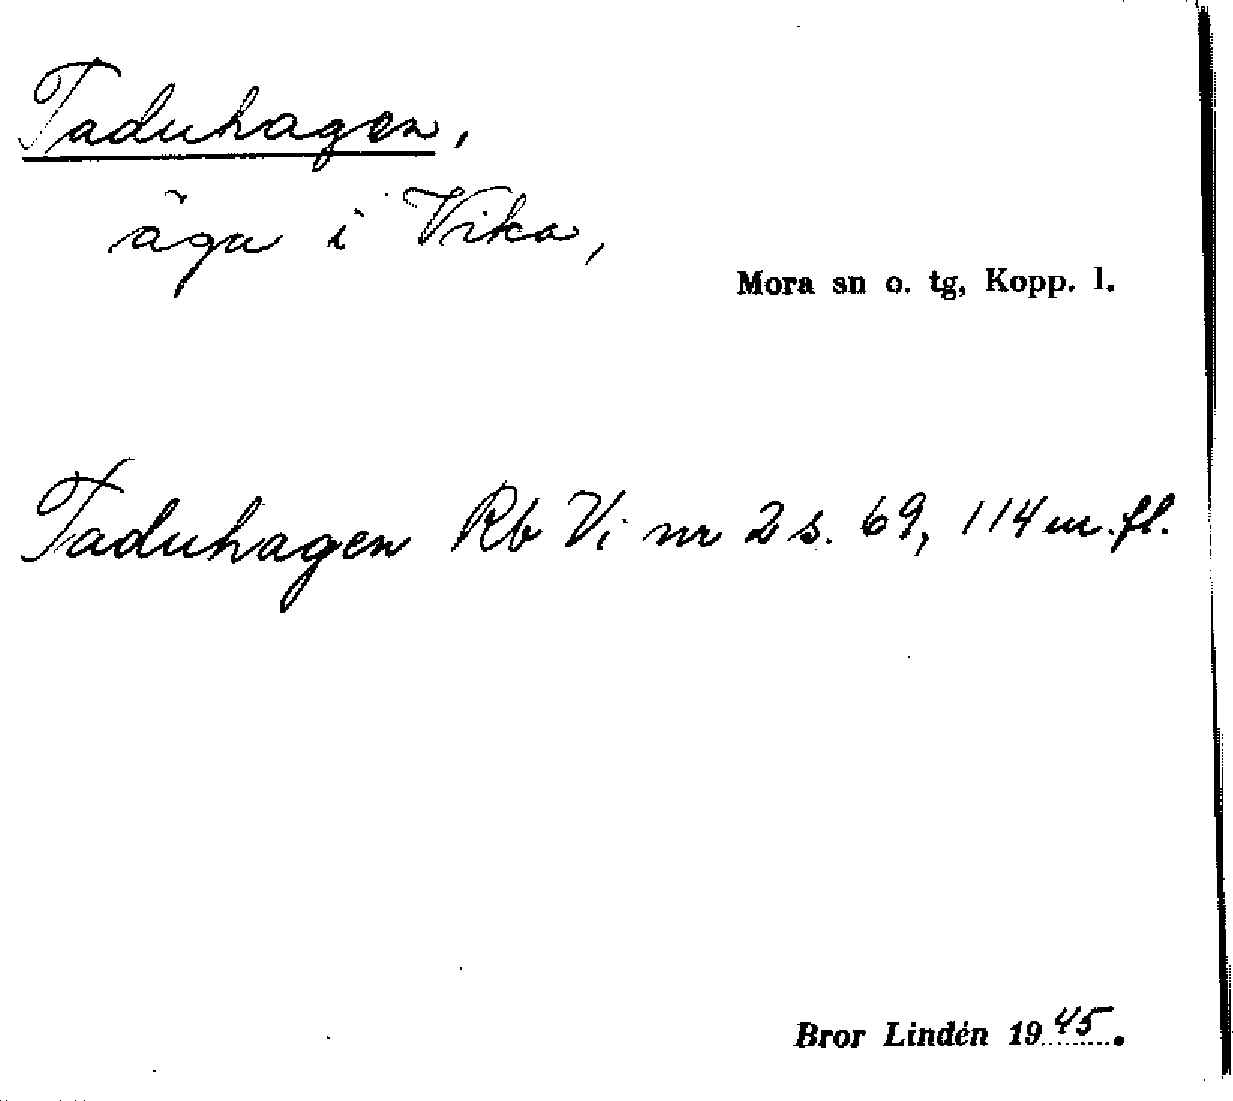 Taduhagen,
äga i Vika,
Mora sn o. tg, Kopp. l.
Taduhagen Rb Vi nr 2 s. 69, 114 m. fl.
Bror Lindén 1945.